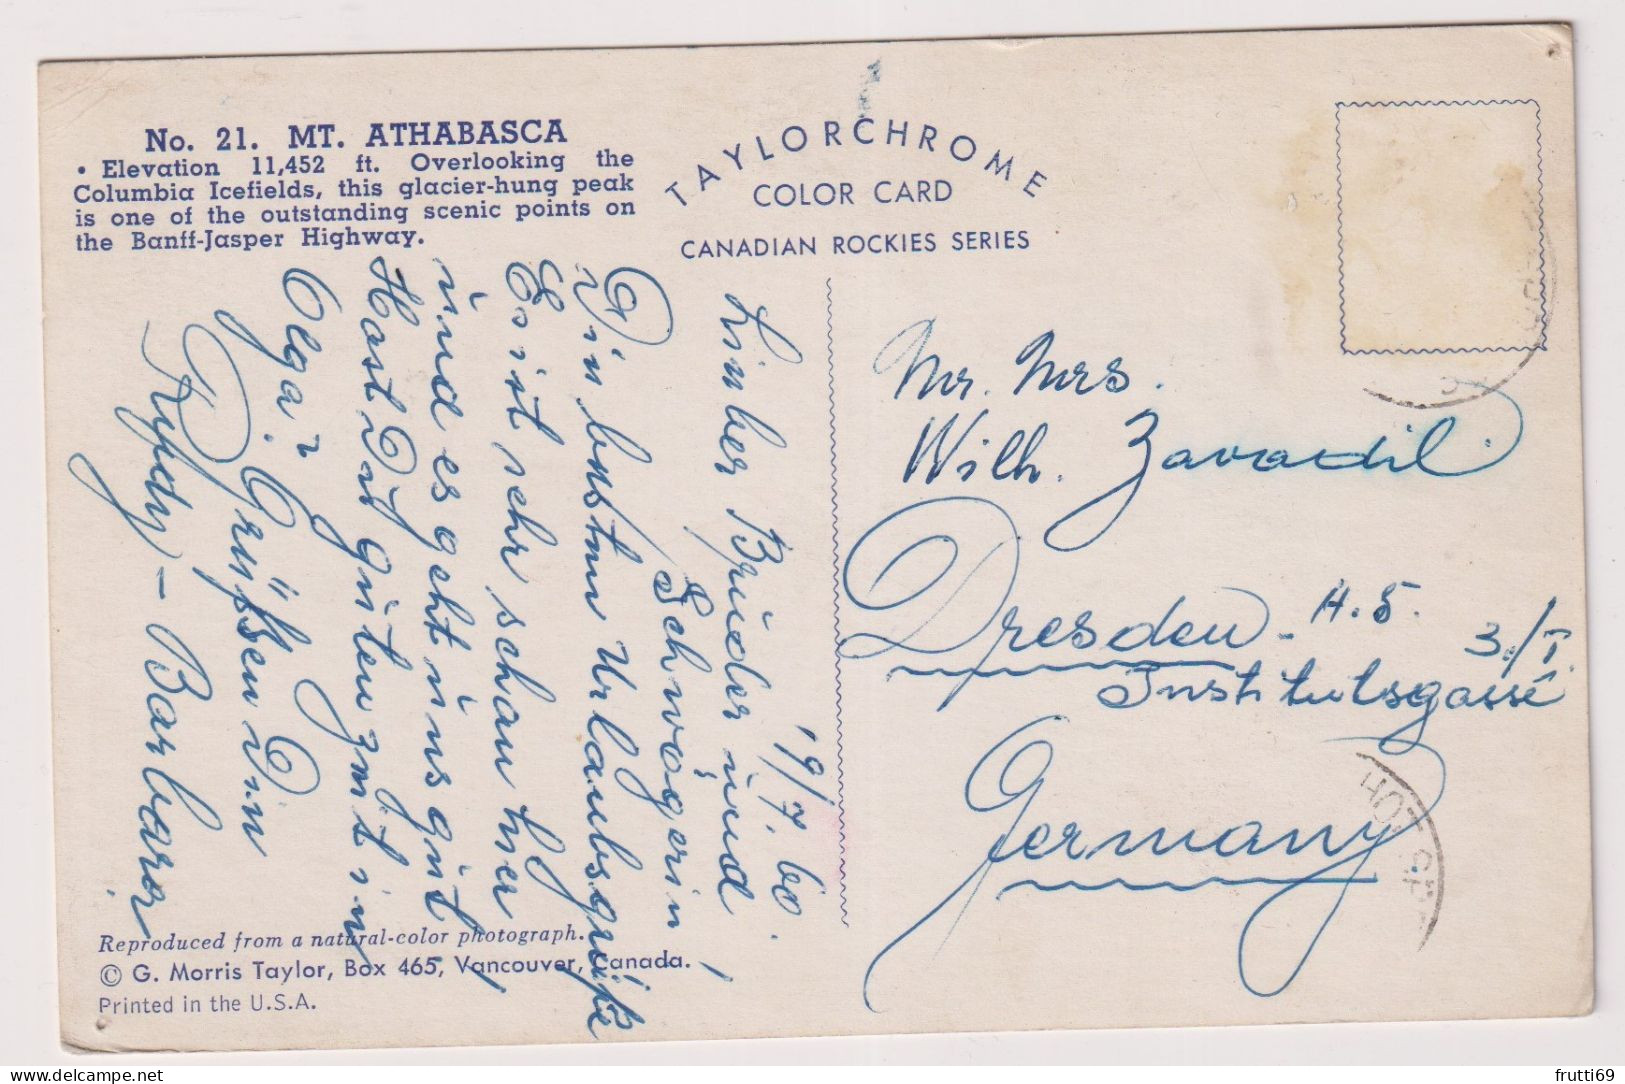 No. 21. MT. ATHABASCA
• Elevation 11,452 ft. Overlooking the
Columbia Icefields, this glacier-hung peak
is one of the outstanding scenic points on
the Banff-Jasper Highway.
TAYLORCHROME
COLOR CARD
CANADIAN ROCKIES SERIES
19/7. 60.
Lieber Brüder und
Schwägerin!
Die besten Urlaubsgrüße
Es ist sehr schön hier,
und es geht uns gut,
Hast Dü guten zmt in
Olga? Grüßsen Din
Rudy – Barbara
Mr. Mrs.
Wilh. Zavadil.
Dresden - A. 5.
3./I.
Institutsgasse
Germany
HOT SP
Reproduced from a natural-color photograph.
© G. Morris Taylor, Box 465, Vancouver, Canada.
Printed in the U.S.A.
frutti69